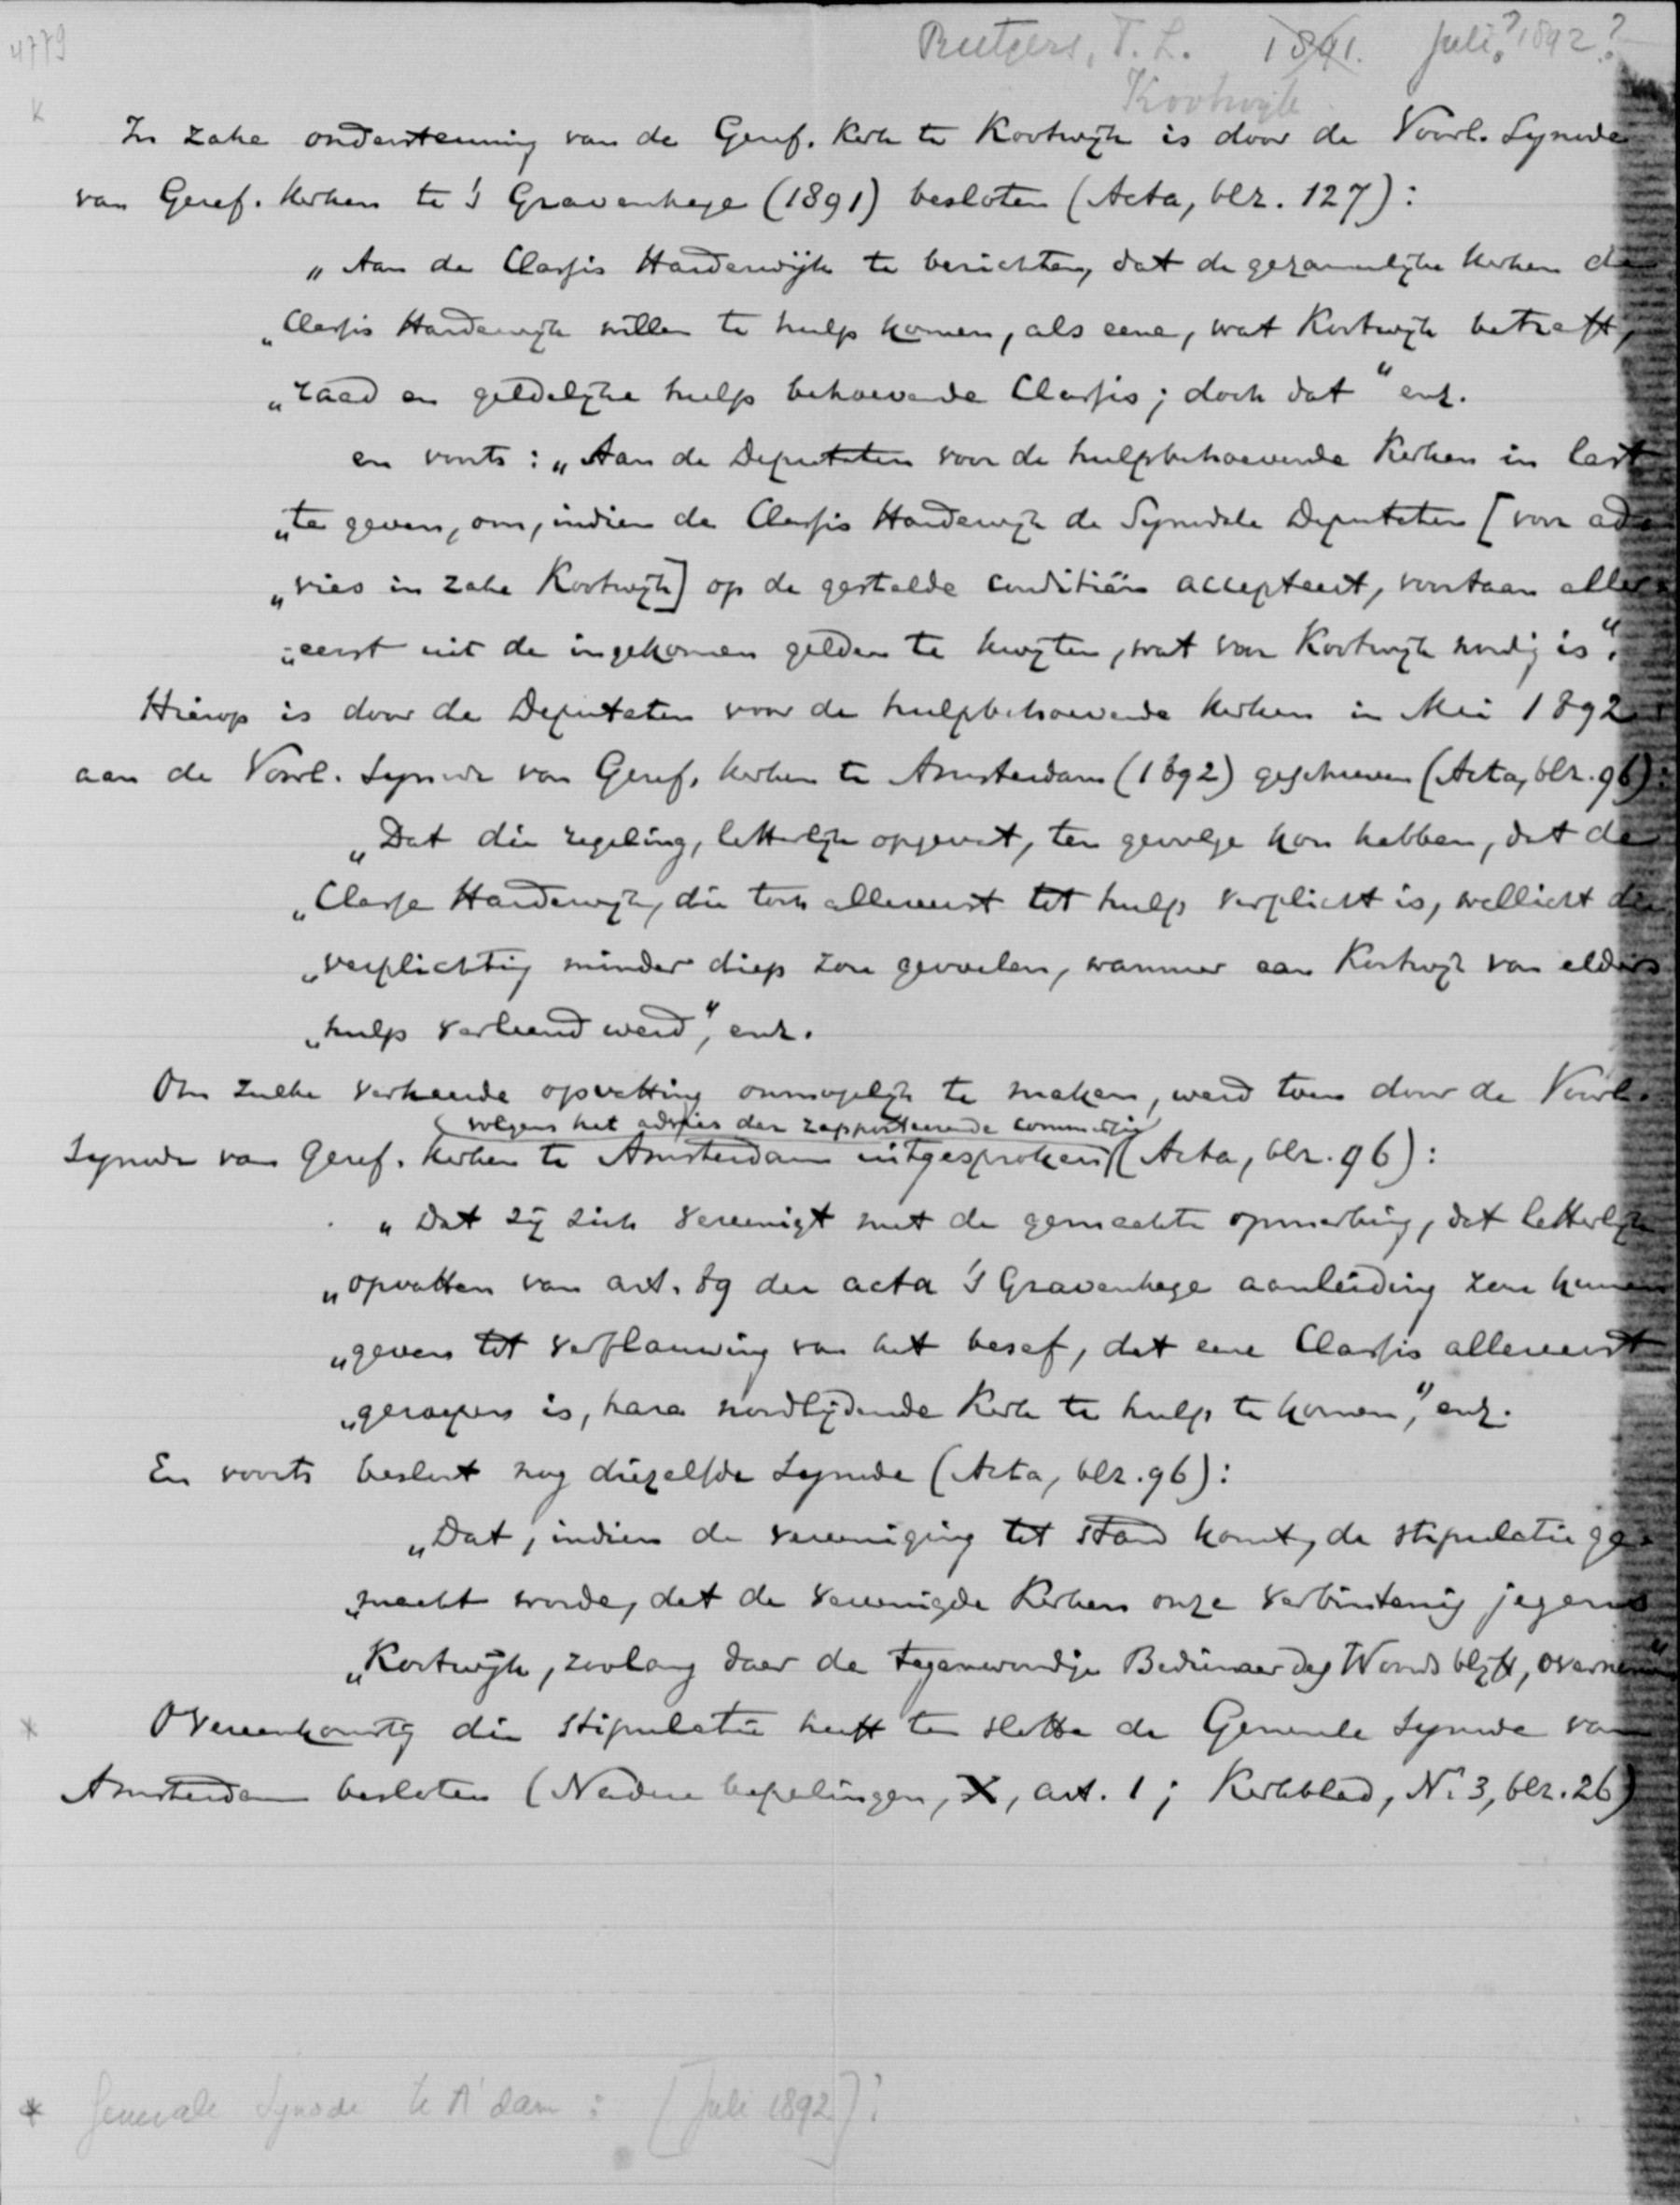 4779
Rutgers, F. L. 1891. Juli? 1892?
K
Kootwijk
In zake ondersteuning van de Geref. Kerk te Kootwijk is door de Voorl. Synode
van Geref. kerken te 's Gravenhage (1891) besloten (Acta, blz. 127):
„Aan de Classis Harderwijk te berichten, dat de gezamenlijke kerken de
„Classis Harderwijk willen te hulp komen, als eene, wat Kootwijk betreft,
„raad en geldelijke hulp behoevende Classis; doch dat" enz.
en voorts: „Aan de Deputaten voor de hulpbehoevende Kerken in last
„te geven, om, indien de Classis Harderwijk de Synodale Deputaten [voor ad-
„vies in zake Kootwijk] op de gestelde conditiën accepteert, voortaan aller-
„eerst uit de ingekomen gelden te kwijten, wat voor Kootwijk noodig is".
Hierop is door de Deputaten voor de hulpbehoevende kerken in Mei 1892
aan de Voorl. Synode van Geref. kerken te Amsterdam (1892) geschreven (Acta, blz. 96):
„Dat die regeling, letterlijk opgevat, ten gevolge kon hebben, dat de
„Classe Harderwijk, die toch allereerst tot hulp verplicht is, wellicht die
„verplichting minder diep zou gevoelen, wanneer aan Kootwijk van elders
„hulp verleend werd", enz.
Om zulke verkeerde opvatting onmogelijk te maken, werd toen door de Voorl.
(volgens het advies der rapporteerende commissie)
Synode van Geref. kerken te Amsterdam uitgesproken (Acta, blz. 96):
„Dat zij zich vereenigt met de gemaakte opmerking, dat letterlijk
„opvatten van art. 89 der acta 's Gravenhage aanleiding zou kunnen
„geven tot verflauwing van het besef, dat eene Classis allereerst
„geroepen is, hare noodlijdende Kerk te hulp te komen", enz.
En voorts besloot nog diezelfde Synode (Acta, blz. 96):
„Dat, indien de vereeniging tot stand komt, de stipulatie ge-
„maakt worde, dat de vereenigde Kerken onze verbintenis jegens
„Kootwijk, zoolang daar de tegenwoordige Bedienaar des Woords blijft, overnemen"
* Overeenkomstig die stipulatie heeft ten slotte de Generale Synode van
Amsterdam besloten (Nadere bepalingen, X, art. 1; Kerkblad, No. 3, blz. 26)
* Generale Synode te A'dam: [Juli 1892]: